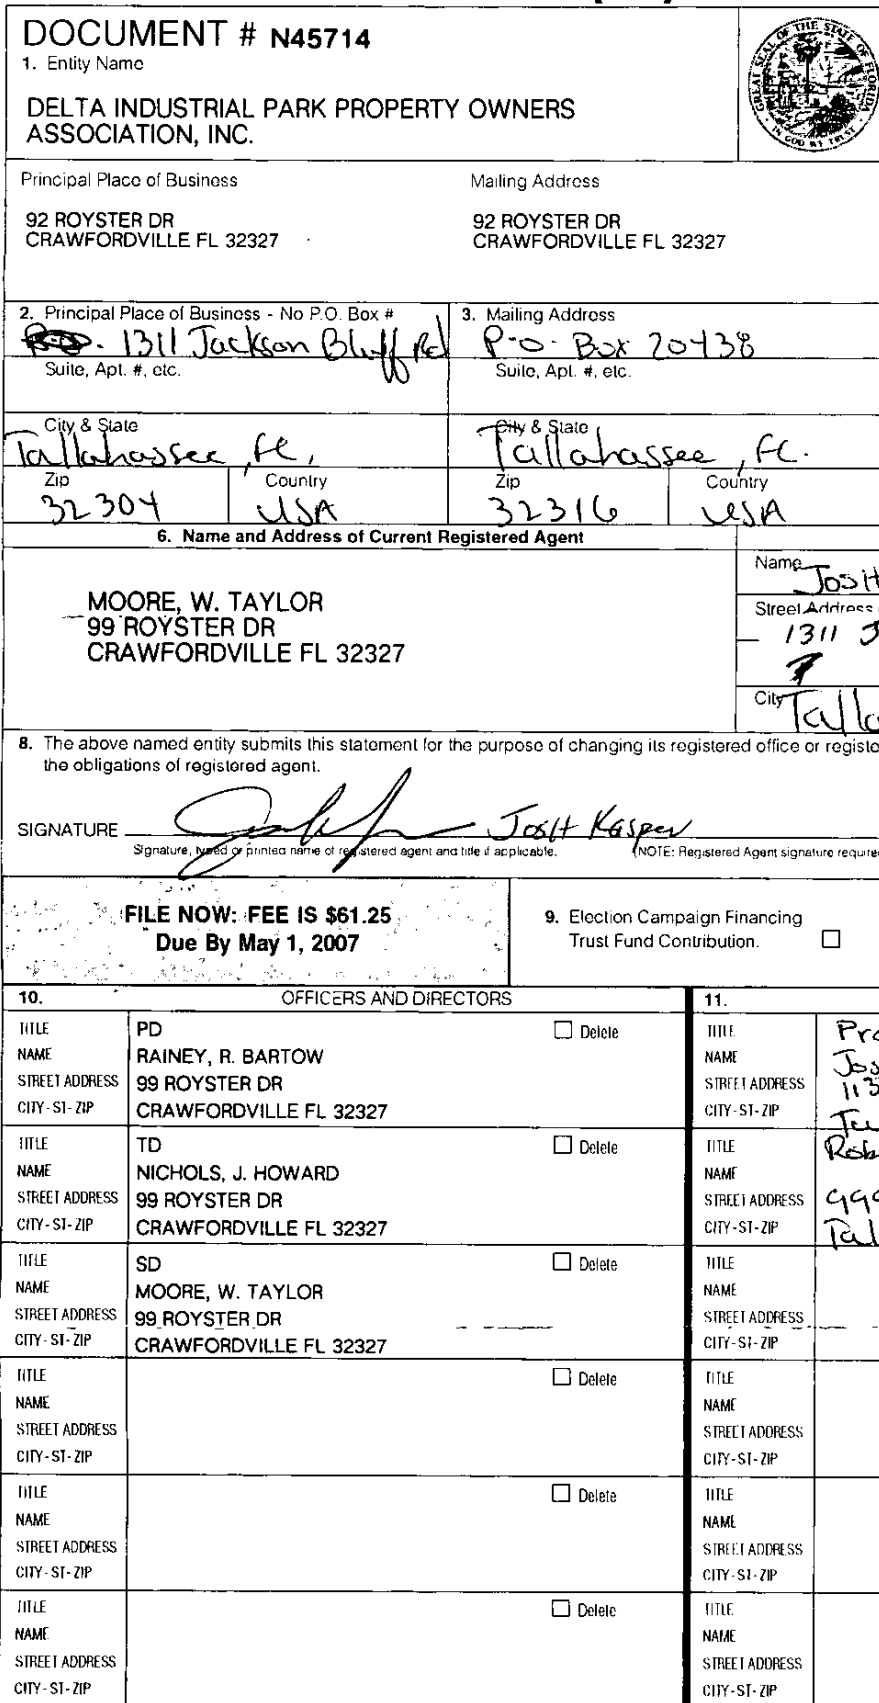 DOCUMENT # N45714
1. Entity Name
DELTA INDUSTRIAL PARK PROPERTY OWNERS
ASSOCIATION, INC.
GREAT SEAL OF THE STATE OF FLORIDA
IN GOD WE TRUST
Principal Place of Business
92 ROYSTER DR
CRAWFORDVILLE FL 32327
Mailing Address
92 ROYSTER DR
CRAWFORDVILLE FL 32327
2. Principal Place of Business - No P.O. Box #
1311 Jackson Bluff Rd
Suite, Apt. #, etc.
City & State
Tallahassee, FL,
Zip
32304
Country
USA
3. Mailing Address
P.O. Box 20438
Suite, Apt. #, etc.
City & State
Tallahassee, FL.
Zip
32316
Country
USA
6. Name and Address of Current Registered Agent
MOORE, W. TAYLOR
99 ROYSTER DR
CRAWFORDVILLE FL 32327
Name
Josh
Street Address
1311 J
City
Talla
8. The above named entity submits this statement for the purpose of changing its registered office or registe
the obligations of registered agent.
SIGNATURE
Josh Kasper
Signature, typed or printed name of registered agent and title if applicable.
(NOTE: Registered Agent signature require
FILE NOW: FEE IS $61.25
Due By May 1, 2007
9. Election Campaign Financing
Trust Fund Contribution.
10. OFFICERS AND DIRECTORS
11.
TITLE PD Delete
NAME RAINEY, R. BARTOW
STREET ADDRESS 99 ROYSTER DR
CITY-ST-ZIP CRAWFORDVILLE FL 32327
TITLE Pre
NAME Jos
STREET ADDRESS 113
CITY-ST-ZIP
TITLE TD Delete
NAME NICHOLS, J. HOWARD
STREET ADDRESS 99 ROYSTER DR
CITY-ST-ZIP CRAWFORDVILLE FL 32327
TITLE Rob
NAME
STREET ADDRESS 999
CITY-ST-ZIP Tal
TITLE SD Delete
NAME MOORE, W. TAYLOR
STREET ADDRESS 99 ROYSTER DR
CITY-ST-ZIP CRAWFORDVILLE FL 32327
TITLE
NAME
STREET ADDRESS
CITY-ST-ZIP
TITLE Delete
NAME
STREET ADDRESS
CITY-ST-ZIP
TITLE
NAME
STREET ADDRESS
CITY-ST-ZIP
TITLE Delete
NAME
STREET ADDRESS
CITY-ST-ZIP
TITLE
NAME
STREET ADDRESS
CITY-ST-ZIP
TITLE Delete
NAME
STREET ADDRESS
CITY-ST-ZIP
TITLE
NAME
STREET ADDRESS
CITY-ST-ZIP